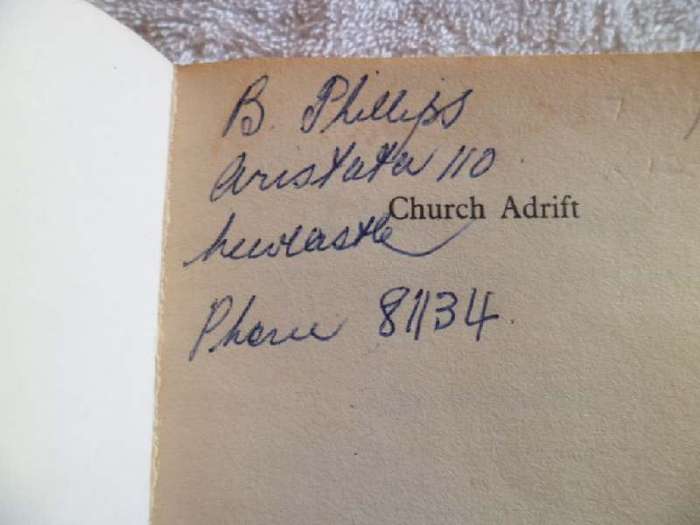 B. Phillips
Aristata 110
Church Adrift
Newcastle
Phone 81134